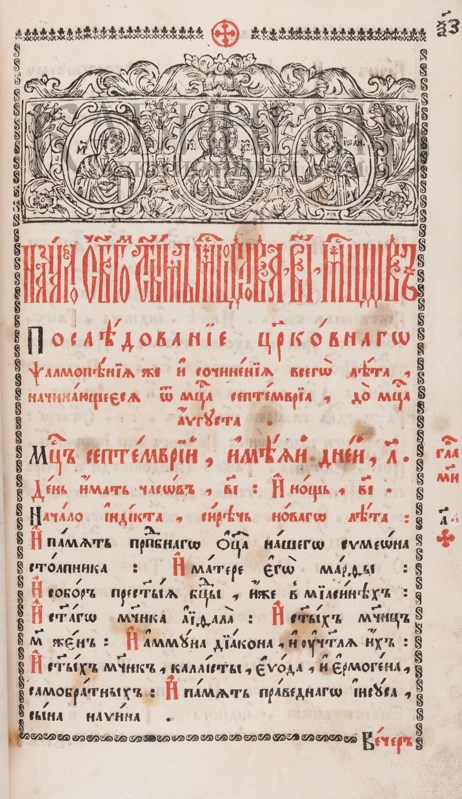 Нача́ло свѧта́гѡ
Послѣ́дованїе цр҃ко́внагѡ
ѱалмопѣ́нїѧ же и҆ сочине́нїѧ всегѡ̀ лѣ́та,
начина́ющеесѧ ѿ мцⷭ҇а септе́мврїа, до мцⷭ҇а
а҆́ѵгꙋста .
Мцⷭ҇ъ септе́мврїй , и҆мѣ́ѧй дне́й , л҃ .
Де́нь и҆́мать часѡ́въ , в҃і : И҆ но́щь , в҃і .
Нача́ло і҆нді́кта , си́рѣчь но́вагѡ лѣ́та :
И҆ па́мѧть прпⷣбнагѡ ѻ҆ц҃а̀ на́шегѡ сѷмеѡ́на
сто́лпника : И҆ ма́тере є҆гѡ̀ ма́рѳы :
И҆ собо́ръ прест҃ы́ѧ бцⷣы , и҆́же в мїаси́нѣхъ :
И҆ ст҃а́гѡ мч҃нка а҆їѳа́ла : И҆ ст҃ы́хъ мч҃нцъ
м҃ же́нъ : И҆ а҆ммꙋ́на дїа́кона , и҆ ᲂу҆чт҃лѧ и҆́хъ :
И҆ ст҃ы́хъ мч҃нкъ , каллі́сты , є҆ѵо́да , и҆ є҆рмоге́на ,
самобра́тныхъ : И҆ па́мѧть пра́веднагѡ і҆исꙋ́са ,
сы́на наѵи́на .
гла
ми
а҃
Ве́черъ